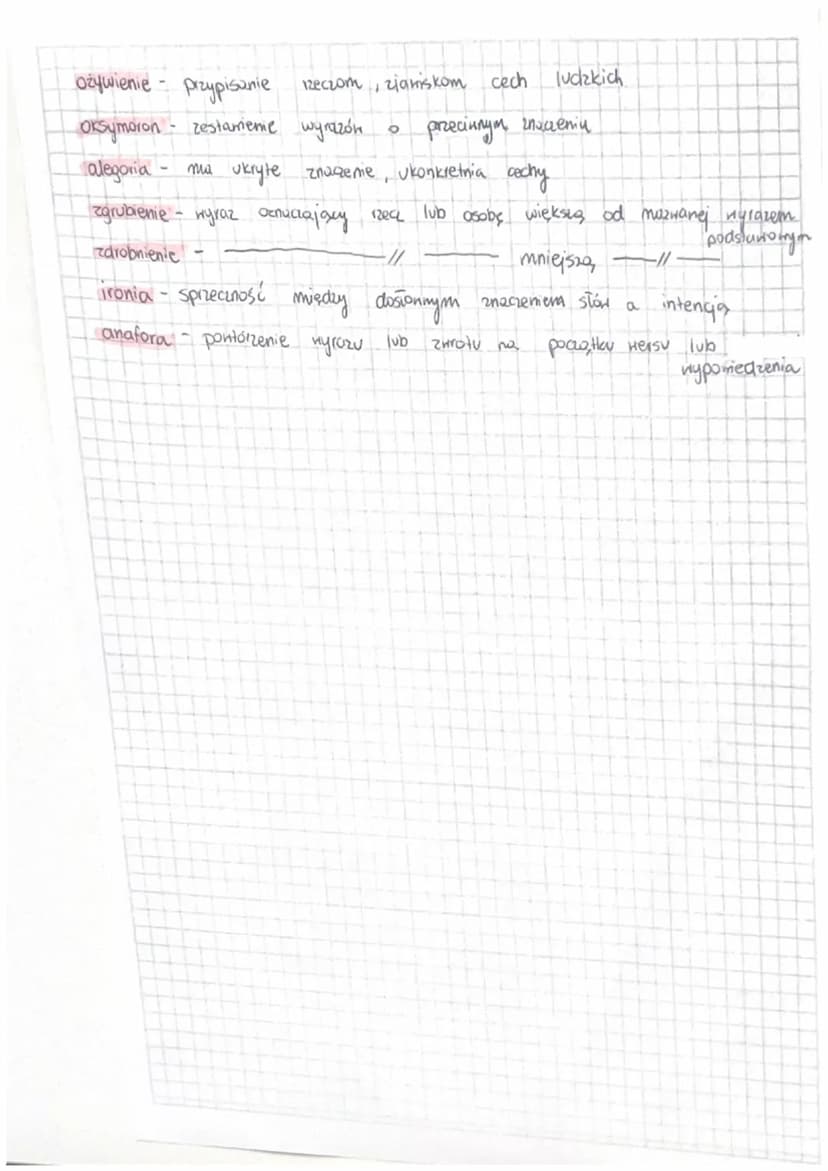 ożywienie - przypisanie rzeczom, zjawiskom cech ludzkich
oksymoron - zestawienie wyrazów o przeciwnym znaczeniu
alegoria - ma ukryte znaczenie, ukonkretnia cechy
zgrubienie - wyraz oznaczający rzecz lub osobę większą od nazwanej wyrazem
podstawowym
zdrobnienie - —//— mniejszą —//—
ironia - sprzeczność między dosłownym znaczeniem słów a intencją
anafora - powtórzenie wyrazu lub zwrotu na początku wersu lub
wypowiedzenia